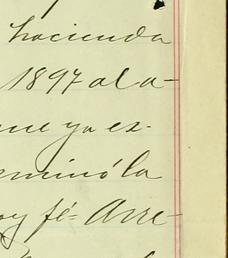 hacienda
1897 al a-
que ya ex-
eminó la
oy fé- Arre-